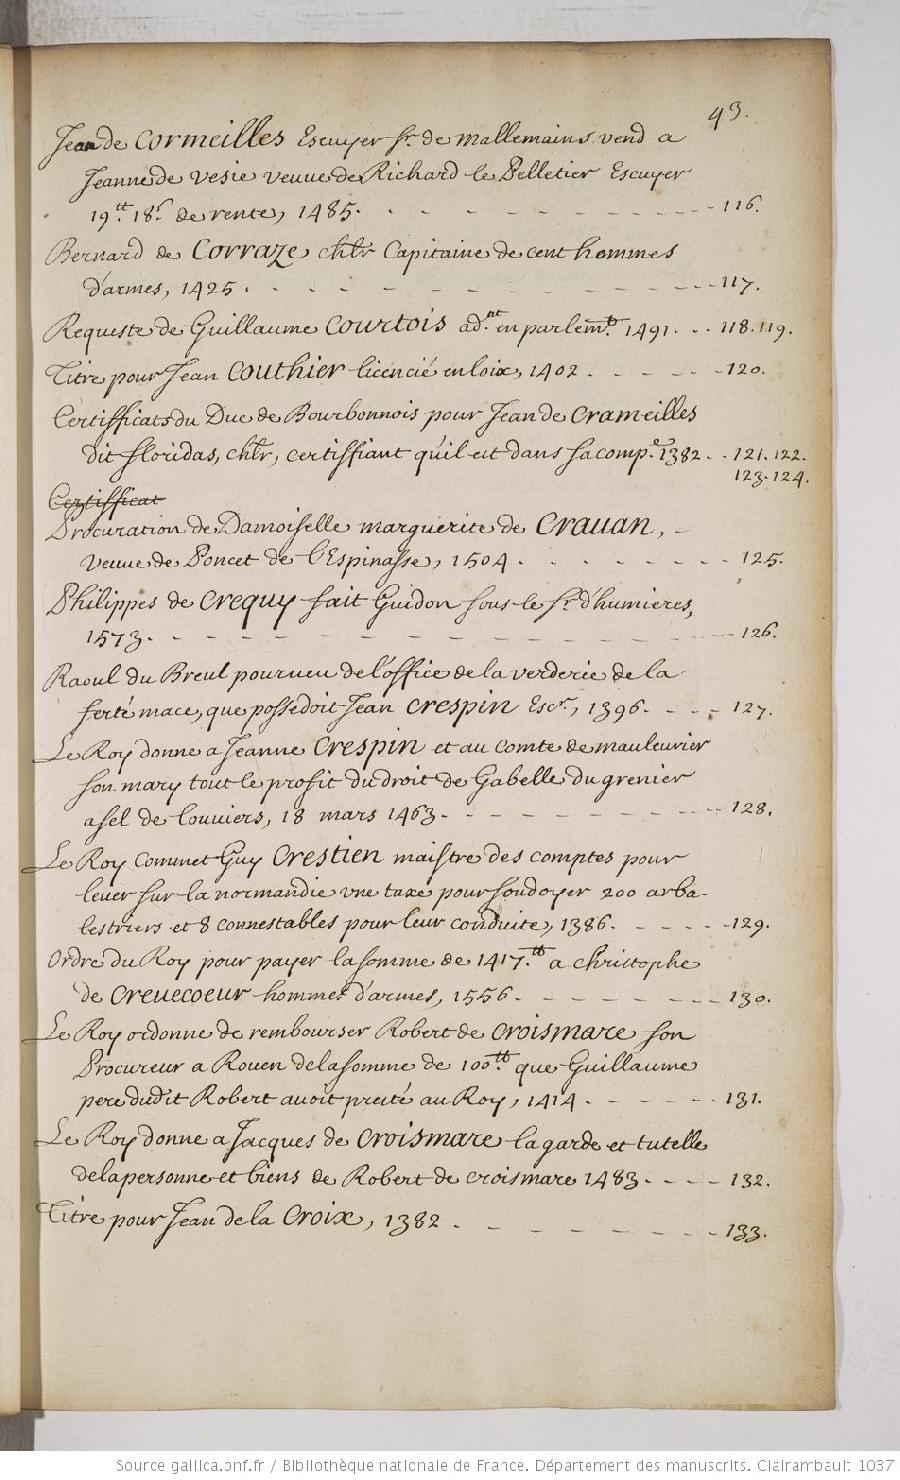 93.
Jean de Cormeilles Escuyer sr. de mallemains vend a
Jeanne de vesie veuve de Richard le Pelletier Escuyer
19.tt 18.s de rente, 1485. - - - - - - - - - 116.
Bernard de Corraze chlr Capitaine de cent hommes
d'armes, 1425. - - - - - - - - - 117.
Requeste de Guillaume Courtois ad.nt en parlemt. 1491. - - 118.119.
Titre pour Jean Couthier licencié en loix, 1402. - - - - 120.
Certifficats du Duc de Bourbonnois pour Jean de Crameilles
dit floridas, chlr, certiffiant qu'il est dans sa comp.e 1382. - 121.122.
123.124.
Certifficat
Procuration de Damoiselle marguerite de Crauan, -
veuve de Poncet de l'Espinasse, 1504. - - - - - - 125.
Philippes de Crequy fait Guidon sous le sr. d'humieres,
1573. - - - - - - - - - - - - 126.
Raoul du Breul pourueu de l'office de la verderie de la
ferté mace, que possedoit Jean Crespin Escr., 1396. - - - 127.
Le Roy donne a Jeanne Crespin et au Comte de mauleurier
son mary tout le profit du droit de Gabelle du grenier
a sel de louuiers, 18 mars 1463. - - - - - - - - 128.
Le Roy Commet Guy Crestien maistre des comptes pour
leuer sur la normandie vne taxe pour soudoyer 200 arba-
lestriers et 8 connestables pour leur conduite, 1386. - - - - 129.
Ordre du Roy pour payer la somme de 1417.tt a christophe
de Creuecoeur hommes d'armes, 1556. - - - - - - 130.
Le Roy ordonne de rembourser Robert de Croismare son
Procureur a Rouen de la somme de 100.tt que Guillaume
pere dudit Robert auoit presté au Roy, 1414. - - - - 131.
Le Roy donne a Jacques de Croismare la garde et tutelle
de la personne et biens de Robert de Croismare 1483. - - - 132.
Titre pour Jean de la Croix, 1382. - - - - - - 133.
Source gallica.bnf.fr / Bibliothèque nationale de France. Département des manuscrits. Clairambault 1037